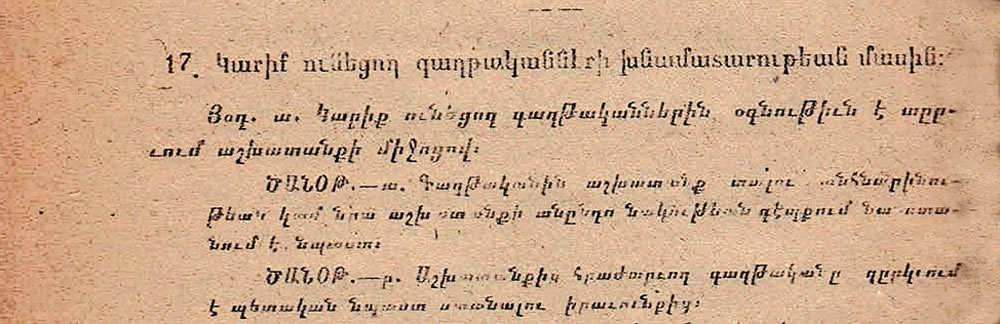 17. Կարիք ունեցող գաղթականների խնամատարութեան մասին:
Յօդ. ա. Կարիք ունեցող գաղթականներին օգնութիւն է տըր-
ւում աշխատանքի միջոցով:
ԾԱՆՕԹ.—ա. Գաղթականին աշխատանք տալու անհնարինու-
թեան կամ նրա աշխատանքի անընդունակութեան դէպքում նա ստա-
նում է նպաստ:
ԾԱՆՕԹ.—բ. Աշխատանքից հրաժարւող գաղթականը զըրկւում
է պետական նպաստ ստանալու իրաւունքից: